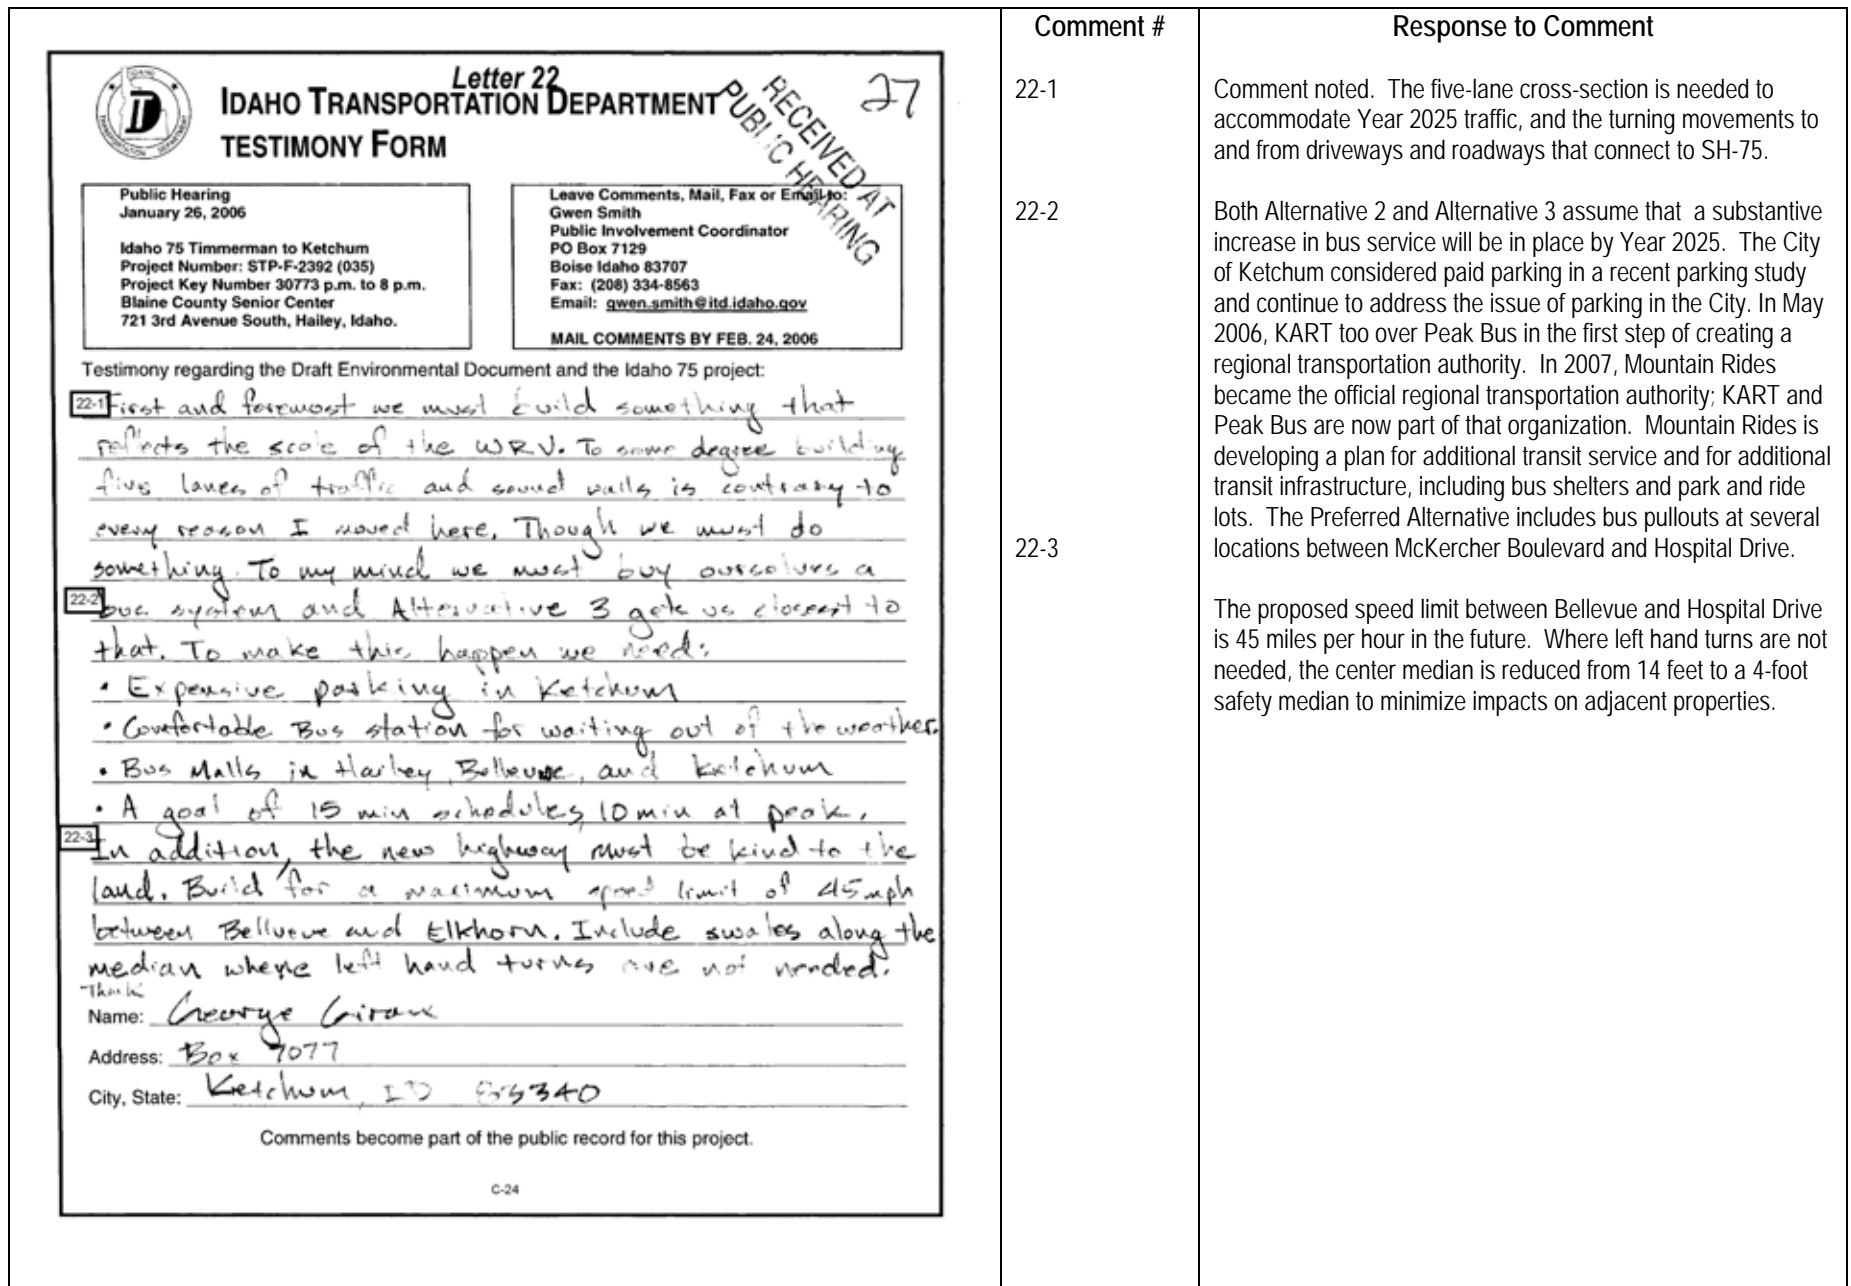 Comment #
Response to Comment
Letter 22
27
IDAHO TRANSPORTATION DEPARTMENT
TESTIMONY FORM
RECEIVED AT
PUBLIC HEARING
Public Hearing
January 26, 2006
Idaho 75 Timmerman to Ketchum
Project Number: STP-F-2392 (035)
Project Key Number 30773 p.m. to 8 p.m.
Blaine County Senior Center
721 3rd Avenue South, Hailey, Idaho.
Leave Comments, Mail, Fax or Email to:
Gwen Smith
Public Involvement Coordinator
PO Box 7129
Boise Idaho 83707
Fax: (208) 334-8563
Email: gwen.smith@itd.idaho.gov
MAIL COMMENTS BY FEB. 24, 2006
Testimony regarding the Draft Environmental Document and the Idaho 75 project:
22-1 First and foremost we must build something that
reflects the scale of the WRV. To some degree building
five lanes of traffic and sound walls is contrary to
every reason I moved here. Though we must do
something. To my mind we must buy ourselves a
22-2 bus system and Alternative 3 gets us closest to
that. To make this happen we need:
• Expensive parking in Ketchum
• Comfortable Bus station for waiting out of the weather.
• Bus Malls in Hailey, Bellevue, and Ketchum
• A goal of 15 min schedules, 10 min at peak.
22-3 In addition, the new highway must be kind to the
land. Build for a maximum speed limit of 45 mph
between Bellveve and Elkhorn. Include swales along the
median where left hand turns are not needed.
Thank
Name: George
Address: Box 7077
City, State: Ketchum, ID 83340
Comments become part of the public record for this project.
C-24
22-1
Comment noted. The five-lane cross-section is needed to
accommodate Year 2025 traffic, and the turning movements to
and from driveways and roadways that connect to SH-75.
22-2
Both Alternative 2 and Alternative 3 assume that a substantive
increase in bus service will be in place by Year 2025. The City
of Ketchum considered paid parking in a recent parking study
and continue to address the issue of parking in the City. In May
2006, KART too over Peak Bus in the first step of creating a
regional transportation authority. In 2007, Mountain Rides
became the official regional transportation authority; KART and
Peak Bus are now part of that organization. Mountain Rides is
developing a plan for additional transit service and for additional
transit infrastructure, including bus shelters and park and ride
lots. The Preferred Alternative includes bus pullouts at several
22-3
locations between McKercher Boulevard and Hospital Drive.
The proposed speed limit between Bellevue and Hospital Drive
is 45 miles per hour in the future. Where left hand turns are not
needed, the center median is reduced from 14 feet to a 4-foot
safety median to minimize impacts on adjacent properties.